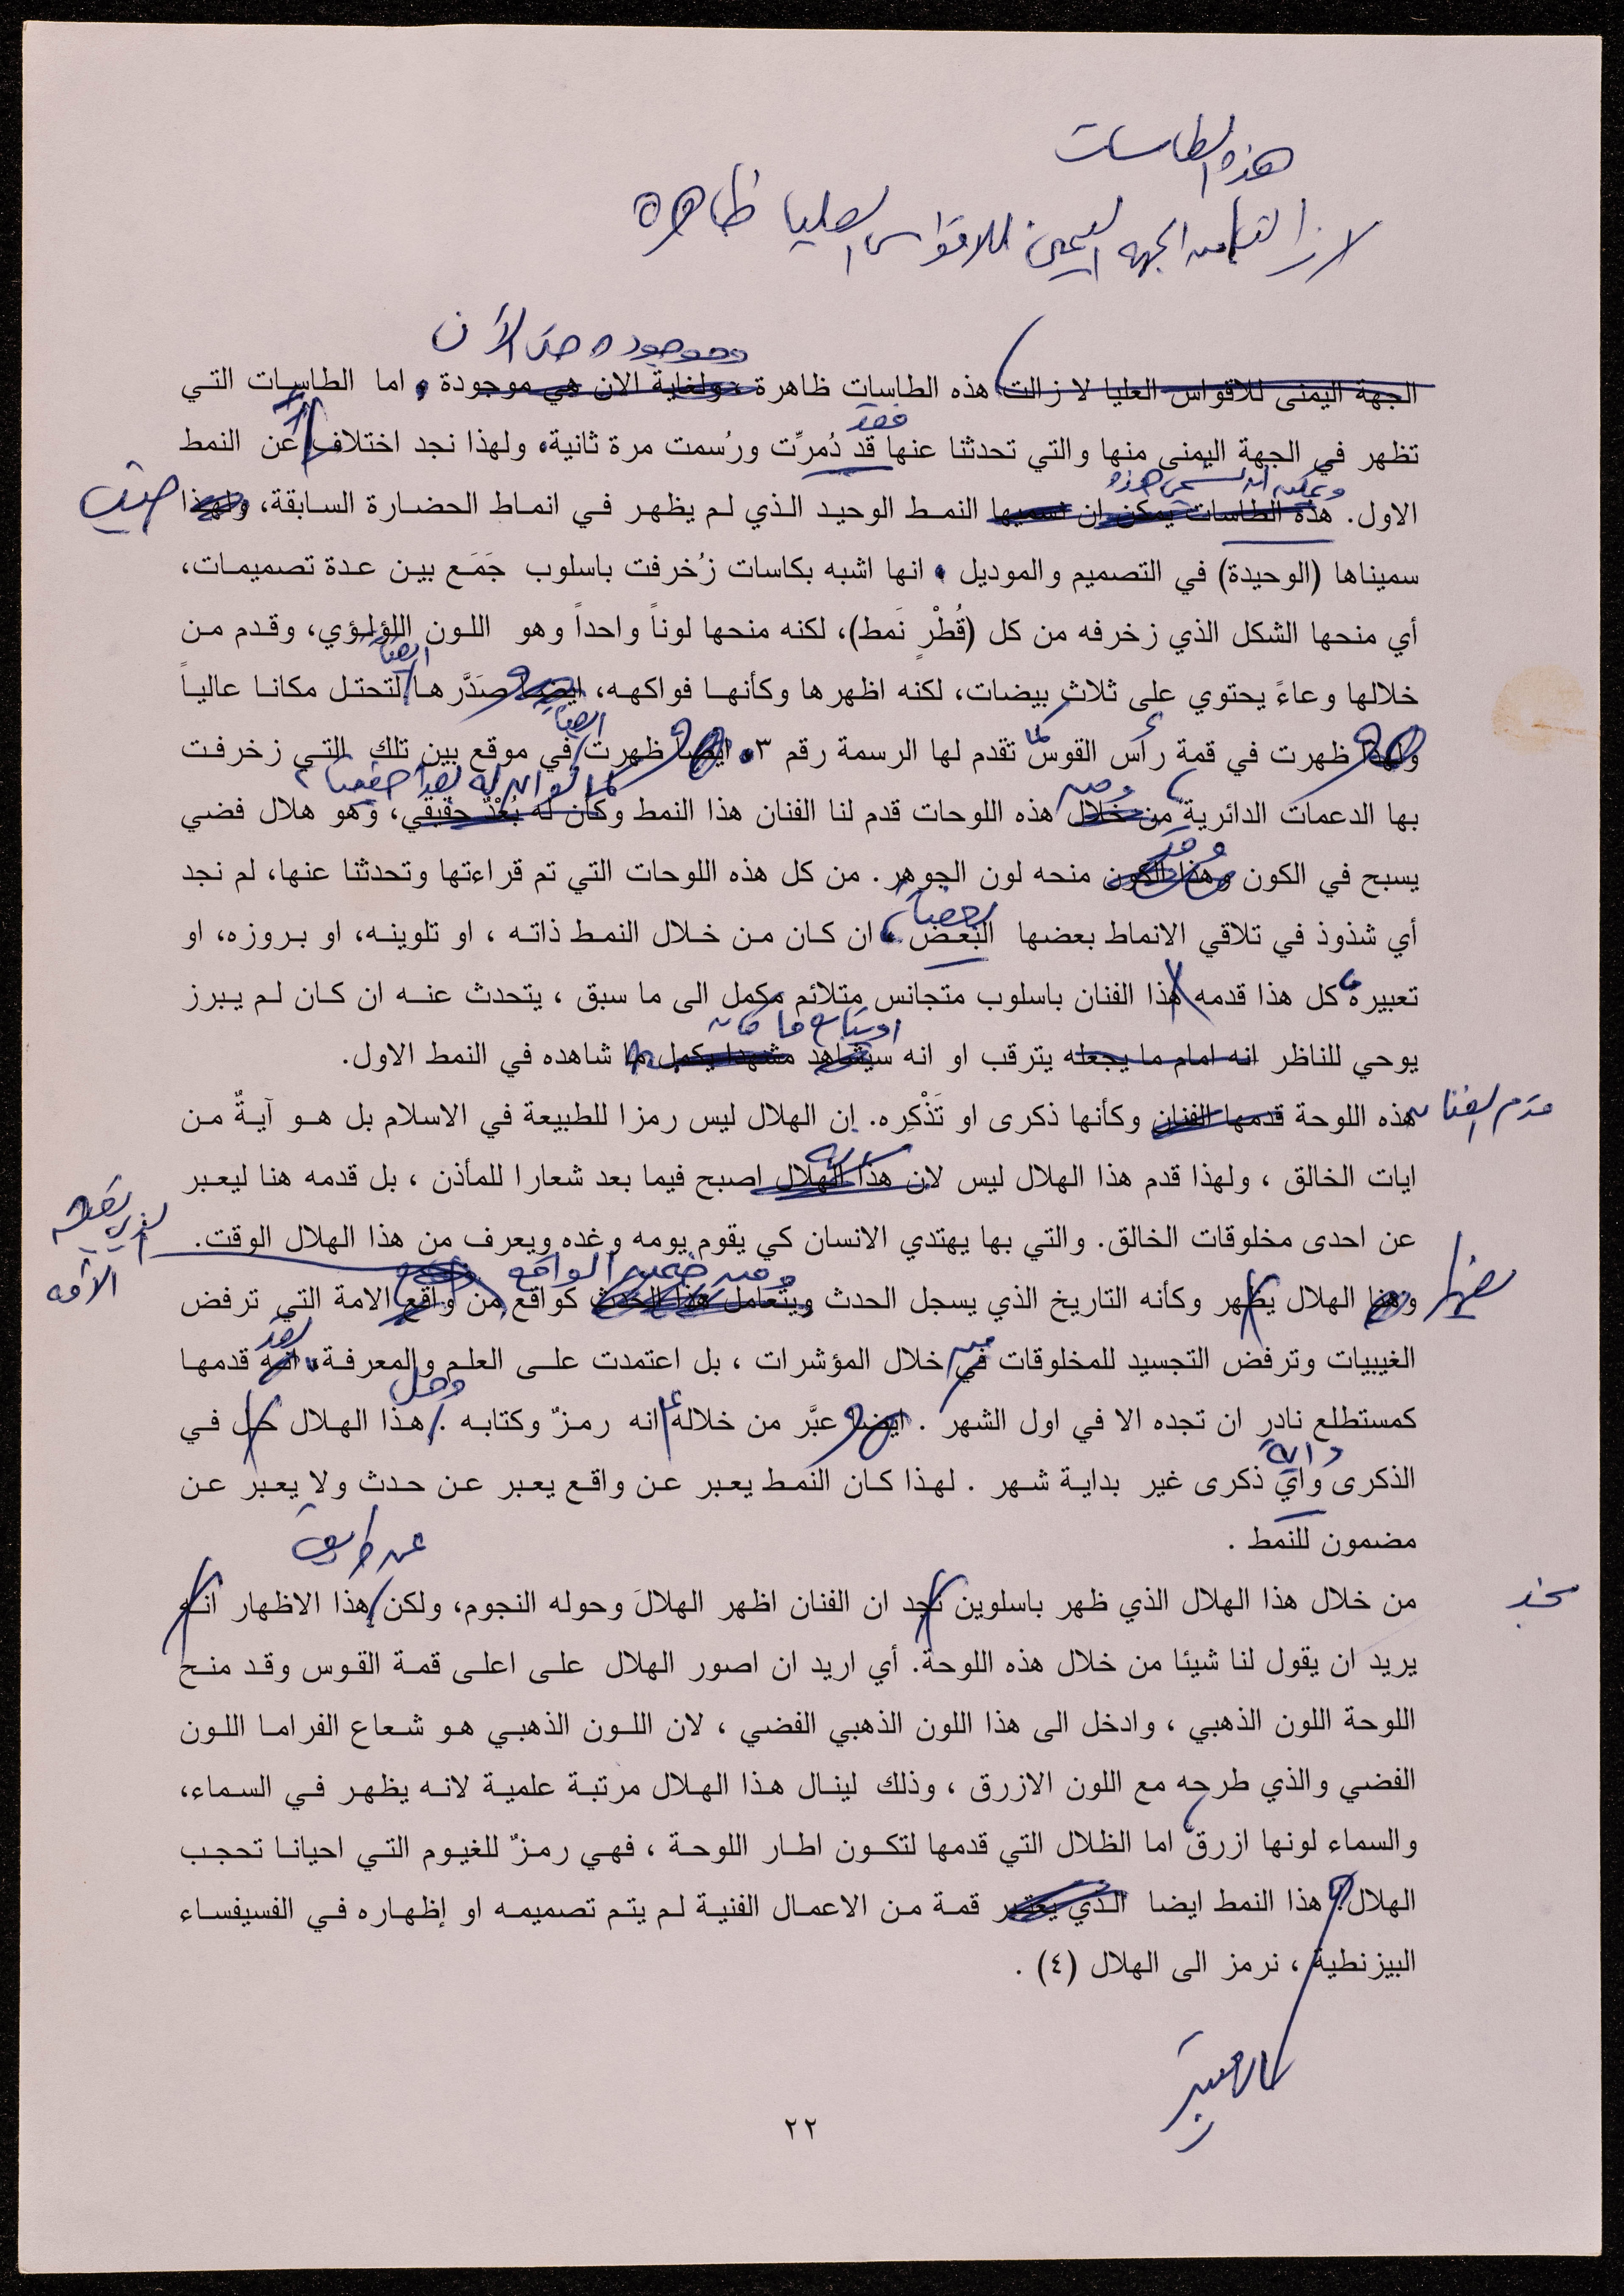 هذه الطاسات
لا زالت من الجهه اليمين للاقواس العليا ظاهرة
وموجوده حتى الآن
الجهة اليمنى للاقواس العليا لا زالت هذه الطاسات ظاهرة ولغاية الان هي موجودة ، اما الطاسات التي
فقد
تظهر في الجهة اليمنى منها والتي تحدثنا عنها قد دُمرِّت ورُسمت مرة ثانية، ولهذا نجد اختلاف عن النمط
ويمكن ان نسمي هذه
الاول. هذه الطاسات يمكن إن نسميها النمط الوحيد الذي لم يظهر في انماط الحضارة السابقة، ولهذا
حيث
سميناها (الوحيدة) في التصميم والموديل ، انها اشبه بكاسات زُخرفت باسلوب جَمَع بين عدة تصميمات،
أي منحها الشكل الذي زخرفه من كل (قُطْرٍ نَمط)، لكنه منحها لوناً واحداً وهو اللون اللؤلؤي، وقدم من
ايضاً
خلالها وعاءً يحتوي على ثلاث بيضات، لكنه اظهرها وكأنها فواكهه، ايضا صَدَّرها لتحتل مكانا عالياً
كما ايضاً
ولهذا ظهرت في قمة رأس القوس تقدم لها الرسمة رقم ٣، ايضا ظهرت في موقع بين تلك التي زخرفت
كما لو ان له بعداً حقيقياً
ومن
بها الدعمات الدائرية من خلال هذه اللوحات قدم لنا الفنان هذا النمط وكأن له بُعْدٌ حقيقي، وهو هلال فضي
وقد
يسبح في الكون وهذا الكون منحه لون الجوهر. من كل هذه اللوحات التي تم قراءتها وتحدثنا عنها، لم نجد
بعضاً
أي شذوذ في تلاقي الانماط بعضها البعض ، ان كان من خلال النمط ذاته ، او تلوينه، او بروزه، او
تعبيره كل هذا قدمه هذا الفنان باسلوب متجانس متلائم مكمل الى ما سبق ، يتحدث عنه ان كان لم يبرز
يوحي للناظر انه امام ما يجعله يترقب او انه سيشاهد مشهدا يكمل ما شاهده في النمط الاول.
قدم الفنان
هذه اللوحة قدمها الفنان وكأنها ذكرى او تَذْكِره. إن الهلال ليس رمزا للطبيعة في الاسلام بل هو آيةٌ من
ايات الخالق ، ولهذا قدم هذا الهلال ليس لان هذا الهلال اصبح فيما بعد شعارا للمأذن ، بل قدمه هنا ليعبر
عن احدى مخلوقات الخالق. والتي بها يهتدي الانسان كي يقوم يومه وغده ويعرف من هذا الهلال الوقت.
الأمه
وهنا الهلال يظهر وكأنه التاريخ الذي يسجل الحدث ويتعامل هذا الحدث كواقع من واقع الامة التي ترفض
من
لقد
الغيبيات وترفض التجسيد للمخلوقات في خلال المؤشرات ، بل اعتمدت على العلم والمعرفة، انه قدمها
وحل
كمستطلع نادر ان تجده الا في اول الشهر . ايضا عبَّر من خلاله انه رمزٌ وكتابه . هذا الهلال حل في
واية
الذكرى واي ذكرى غير بداية شهر . لهذا كان النمط يعبر عن واقع يعبر عن حدث ولا يعبر عن
مضمون للنمط .
عن طريق
نجد
من خلال هذا الهلال الذي ظهر باسلوين نجد ان الفنان اظهر الهلالَ وحوله النجوم، ولكن هذا الاظهار انه
يريد ان يقول لنا شيئا من خلال هذه اللوحة. أي اريد ان اصور الهلال على اعلى قمة القوس وقد منح
اللوحة اللون الذهبي ، وادخل الى هذا اللون الذهبي الفضي ، لان اللون الذهبي هو شعاع الفراما اللون
الفضي والذي طرحه مع اللون الازرق ، وذلك لينال هذا الهلال مرتبة علمية لانه يظهر في السماء،
والسماء لونها ازرق اما الظلال التي قدمها لتكون اطار اللوحة ، فهي رمزٌ للغيوم التي احيانا تحجب
الهلال. هذا النمط ايضا الذي يعتبر قمة من الاعمال الفنية لم يتم تصميمه او إظهاره في الفسيفساء
البيزنطية ، نرمز الى الهلال (٤) .
٢٢